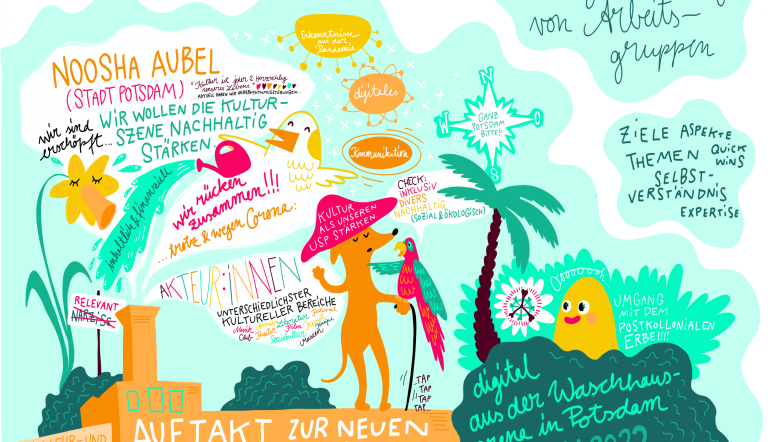 von Arbeits-
gruppen
Erkenntnisse
aus der
Pandemie
NOOSHA AUBEL
(STADT POTSDAM)
"Kultur ist jeder 2. Herzschlag
unseres Lebens."
wir sind
erschöpft...
WIR WOLLEN DIE KULTUR-
SZENE NACHHALTIG
STÄRKEN.
digitales
Kommunikation
inhaltlich & finanziell
wir rücken
zusammen!!!
...trotz & wegen Corona:
N
W
O
S
GANZ
POTSDAM
BITTE!!
ZIELE ASPEKTE
THEMEN QUICK
WINS
SELBST-
VERSTÄNDNIS
EXPERTISE
CHECK:
INKLUSIV
DIVERS
NACHHALTIG
(SOZIAL & ÖKOLOGISCH)
KULTUR
ALS UNSEREN
USP STÄRKEN
AKTEUR:INNEN
UNTERSCHIEDLICHSTER
KULTURELLER BEREICHE
Musik
Literatur
Club
Theater
Film
Soziokultur
Museen
RELEVANT
NARZISS
Ooooouh..
UMGANG
MIT DEM
POSTKOLLONIALEN
ERBE!!!!
...TAP
TAP
TAP
TAP...
digital
aus der Waschhaus-
arena in Potsdam
2022
AUFTAKT ZUR NEUEN